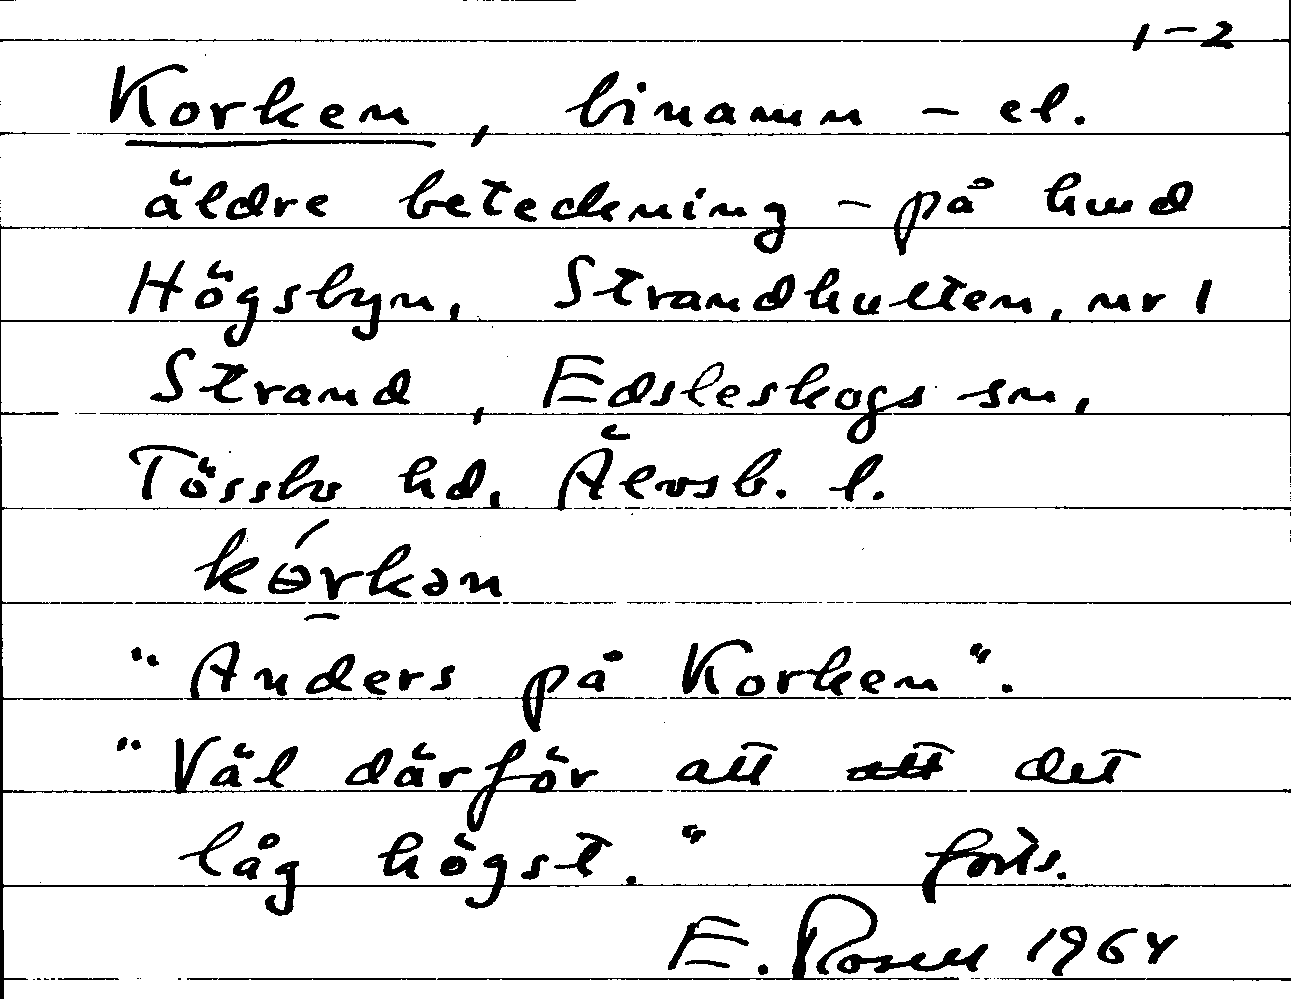 1-2
Korken, binamn - el.
äldre beteckning - på hmd
Högsbyn, Strandhulten, nr 1
Strand, Edsleskogs sn,
Tössbo hd, Älvsb. l.
kɵ́rkən
"Anders på Korken".
"Väl därför att att det
låg högst." forts.
E. Rosell 1964